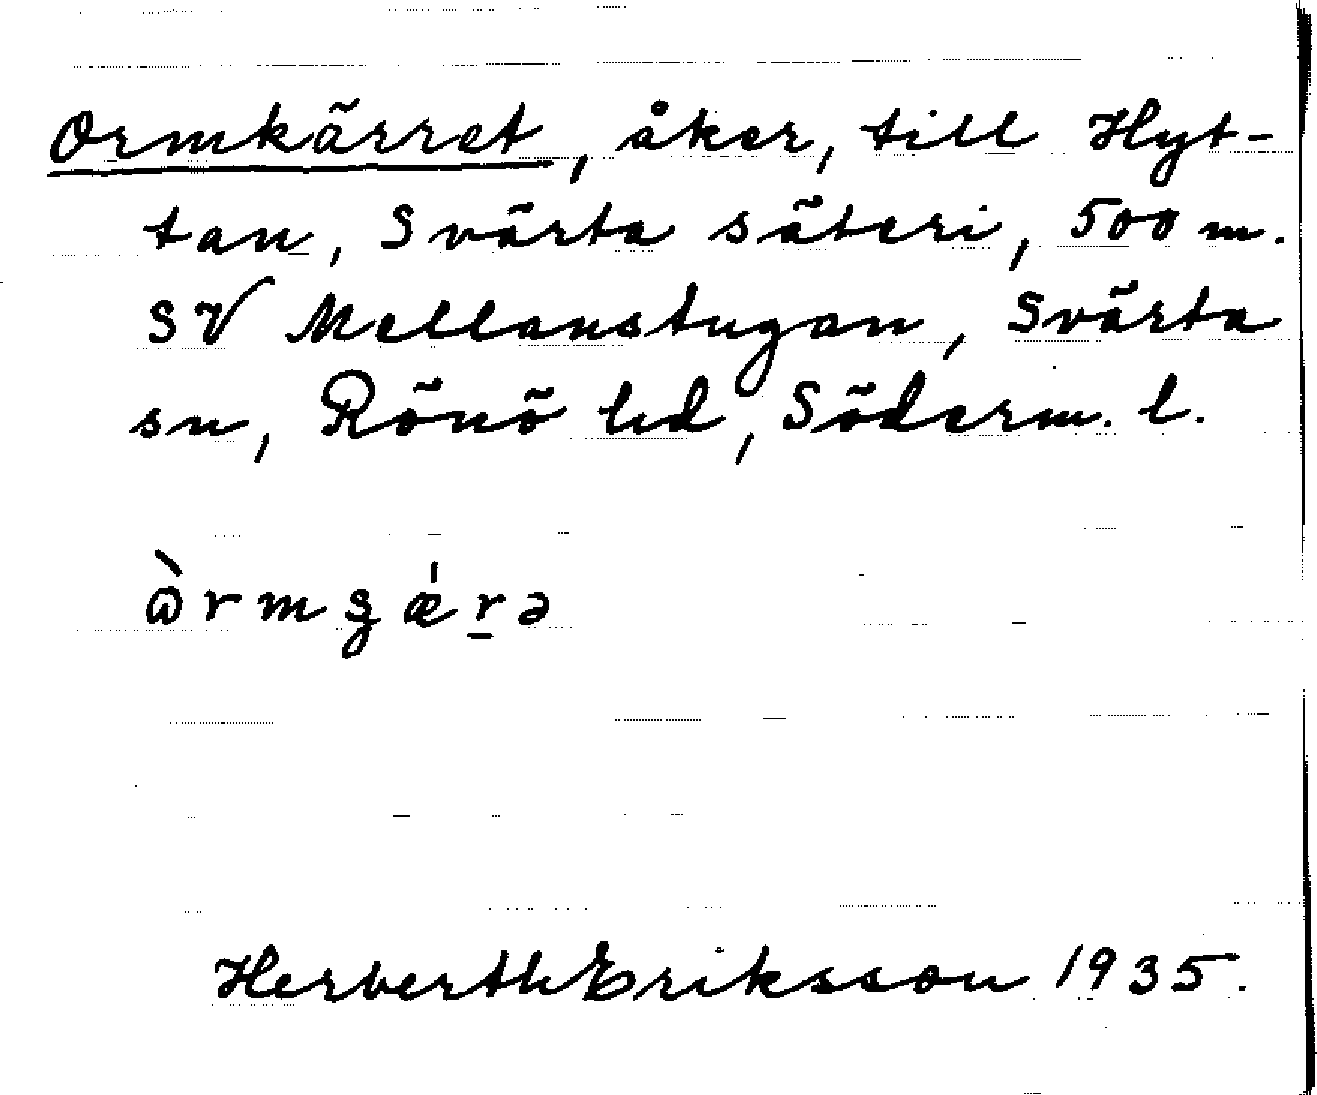 Ormkärret, åker, till Hyt-
tan, Svärta säteri, 500 m.
SV Mellanstugan, Svärta
sn, Rönö hd, Söderm. l.
Herberth Eriksson 1935.